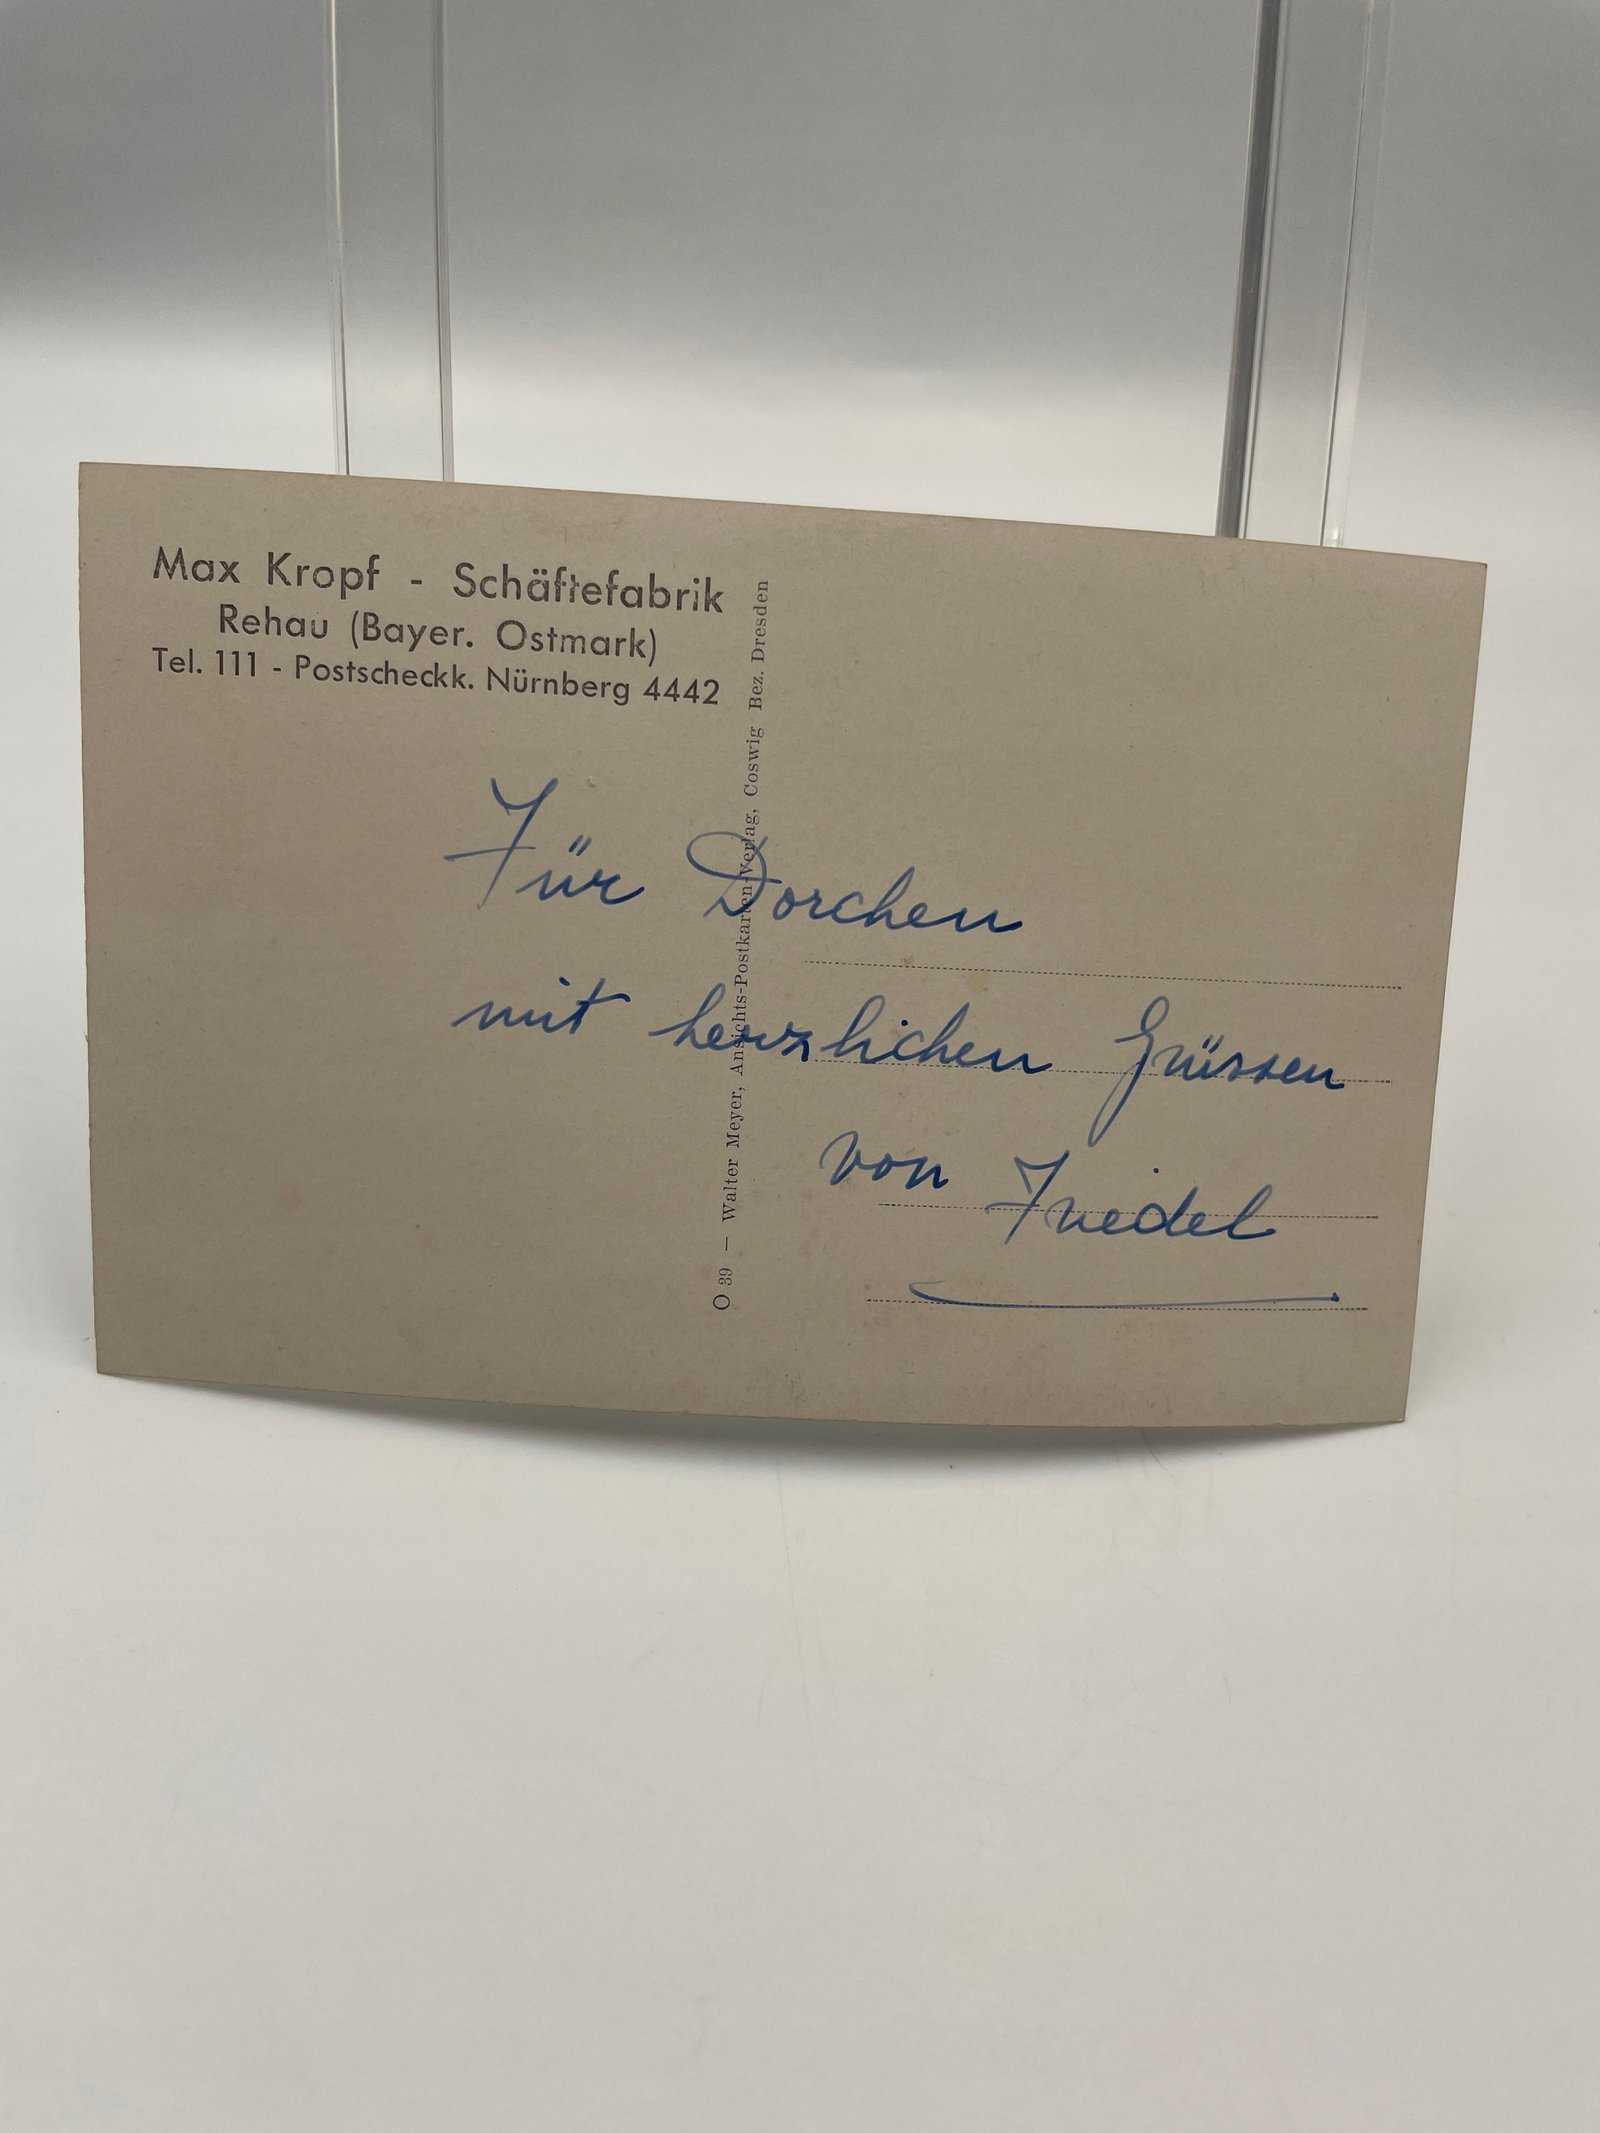 Max Kropf - Schäftefabrik
Rehau (Bayer. Ostmark)
Tel. 111 - Postscheckk. Nürnberg 4442
O 39 — Walter Meyer, Ansichts-Postkarten-Verlag, Coswig Bez. Dresden
Für Dorchen
mit herzlichen Grüssen
von Friedel